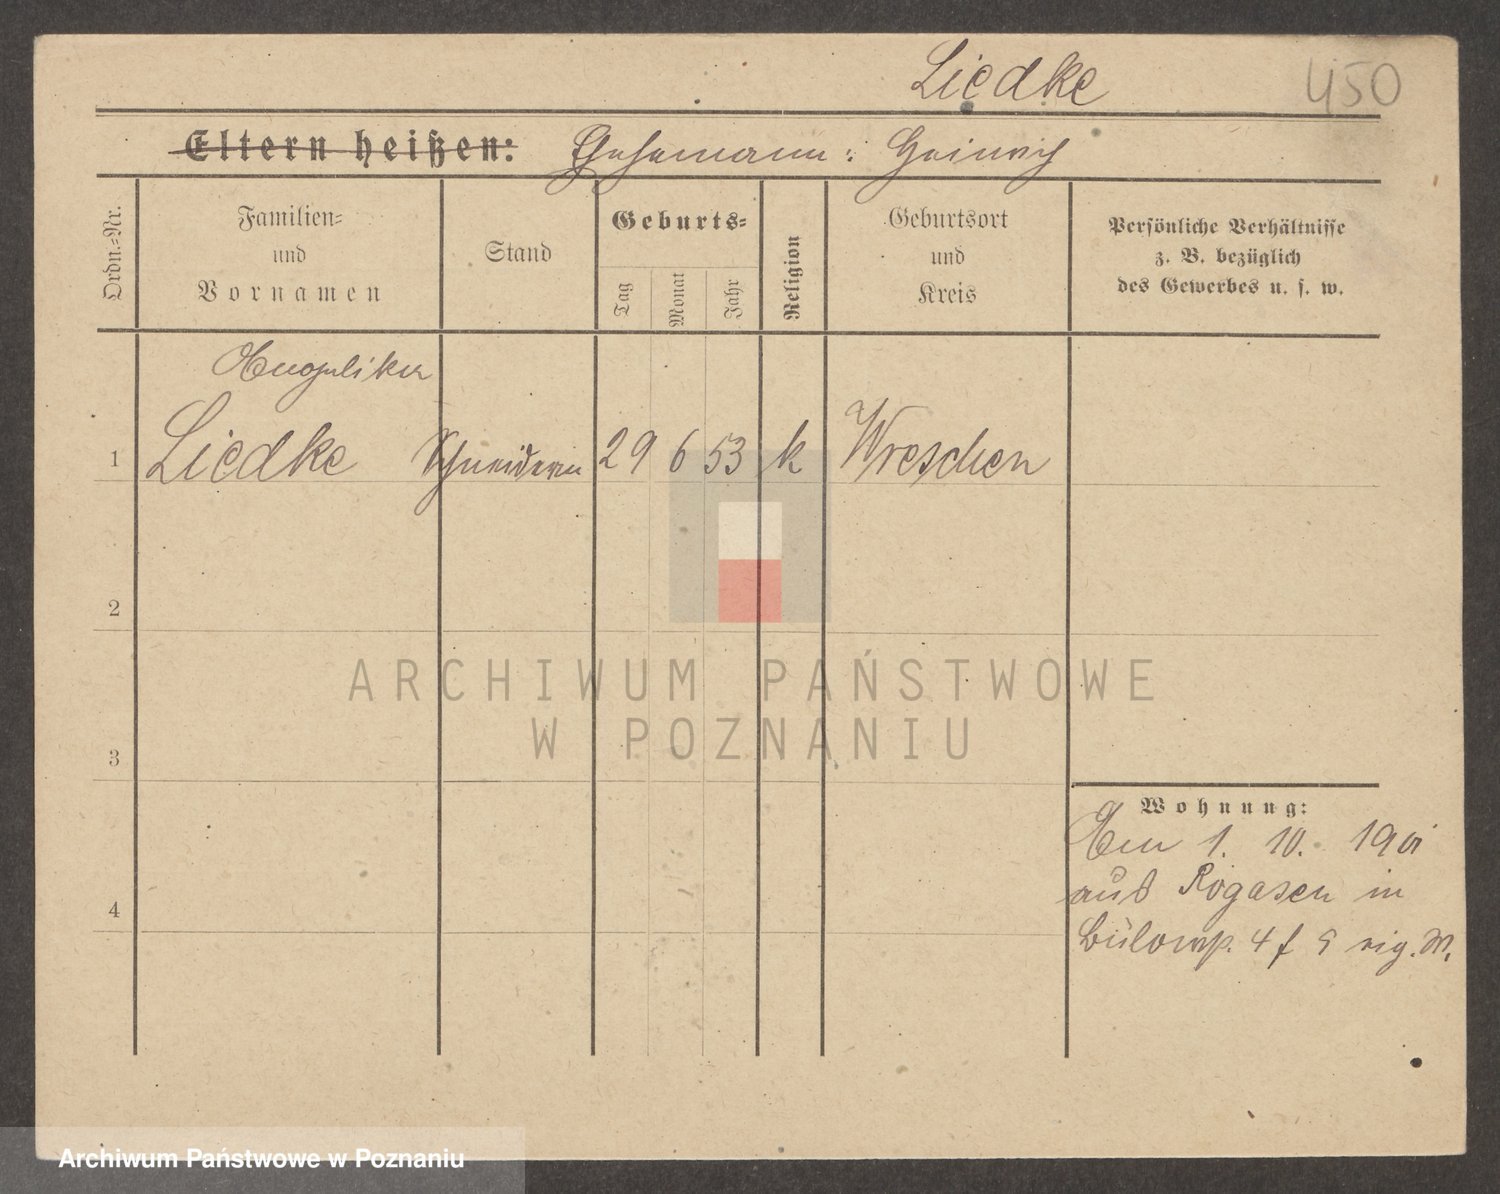 Liedke
450
Eltern heißen: Ehemann: Heinrich
Ordn.-Nr.
Familien-
und
Vornamen
Stand
Geburts-
Tag
Monat
Jahr
Religion
Geburtsort
und
Kreis
Persönliche Verhältnisse
z. B. bezüglich
des Gewerbes u. s. w.
Angelika
1 Liedke Schneiderin 29 6 53 k Wreschen
2
ARCHIWUM PAŃSTWOWE
W POZNANIU
3
Wohnung:
Am 1. 10. 1901
aus Rogasen in
4
Bülowstr. 4
Archiwum Państwowe w Poznaniu